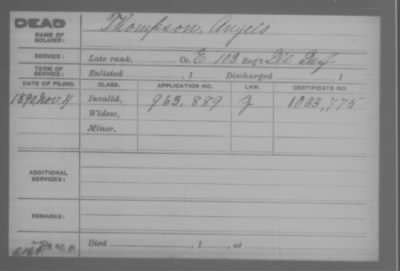 DEAD
NAME OF SOLDIER:
Thompson, Angelo
SERVICE:
Late rank, Co. E 103 Reg't Ill Inf
TERM OF SERVICE:
Enlisted , 1 Discharged , 1
DATE OF FILING. CLASS. APPLICATION NO. LAW. CERTIFICATE NO.
1890 Nov Invalid, 963,889 J 1033,775
Widow,
Minor,
ADDITIONAL SERVICES:
REMARKS:
Died , 1 , at